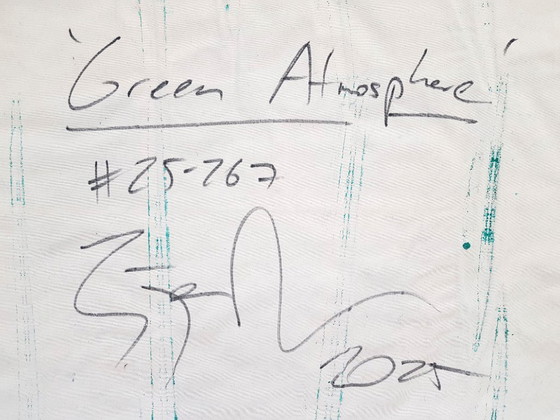 'Green Atmosphere'
#25-267
2025